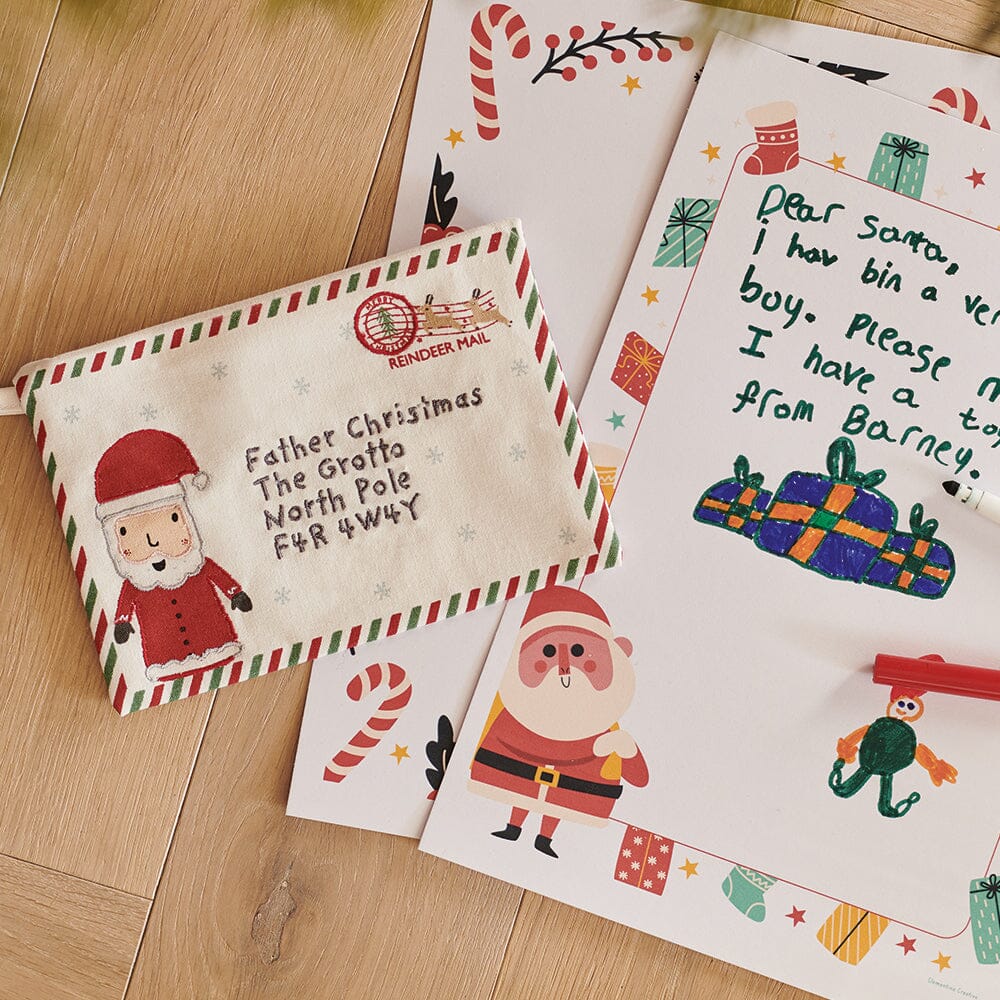 MERRY
CHRISTMAS
REINDEER MAIL
Father Christmas
The Grotto
North Pole
F4R 4W4Y
Dear Santa,
i hav bin a ver
boy. Please
I have a
from Barney.
Clementine Creative